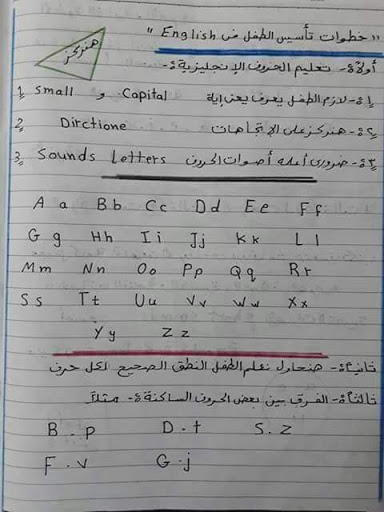 "خطوات تأسيس الطفل فى English"
هنركز
أولاً:- تعليم الحروف الإنجليزية:-
١:- لازم الطفل يعرف يعنى إية Capital و Small 1
٢:- هنركز على الإتجاهات Dirctione 2
٣:- ضرورى أعلمه أصوات الحروف Sounds Letters 3
A a B b C c D d E e F f
G g H h I i J j K k L l
M m N n O o P p Q q R r
S s T t U u V v W w X x
Y y Z z
ثانياً:- هنحاول نعلم الطفل النطق الصحيح لكل حرف
ثالثاً:- الفرق بين بعض الحروف الساكنة:- مثلاً
B . p D . t S . z
F . v G . j